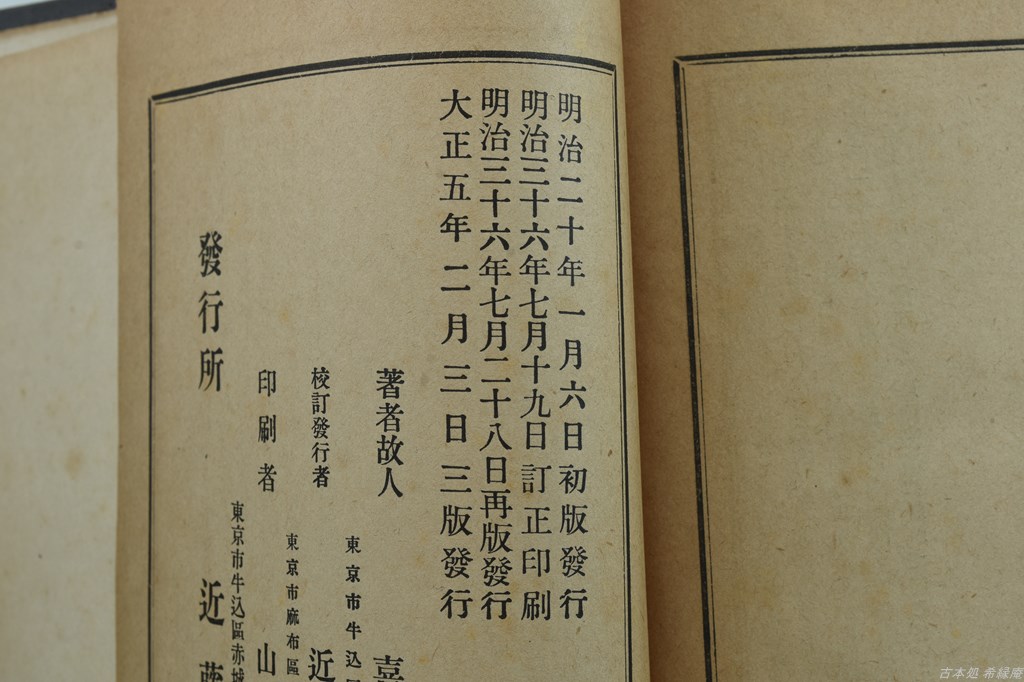 明治二十年一月六日初版發行
明治三十六年七月十九日訂正印刷
明治三十六年七月二十八日再版發行
大正五年二月三日三版發行
著者故人
喜
東京市牛込
校訂發行者
近
東京市麻布區
印刷者
山
東京市牛込區赤城
發行所
近
古本処 希縁庵